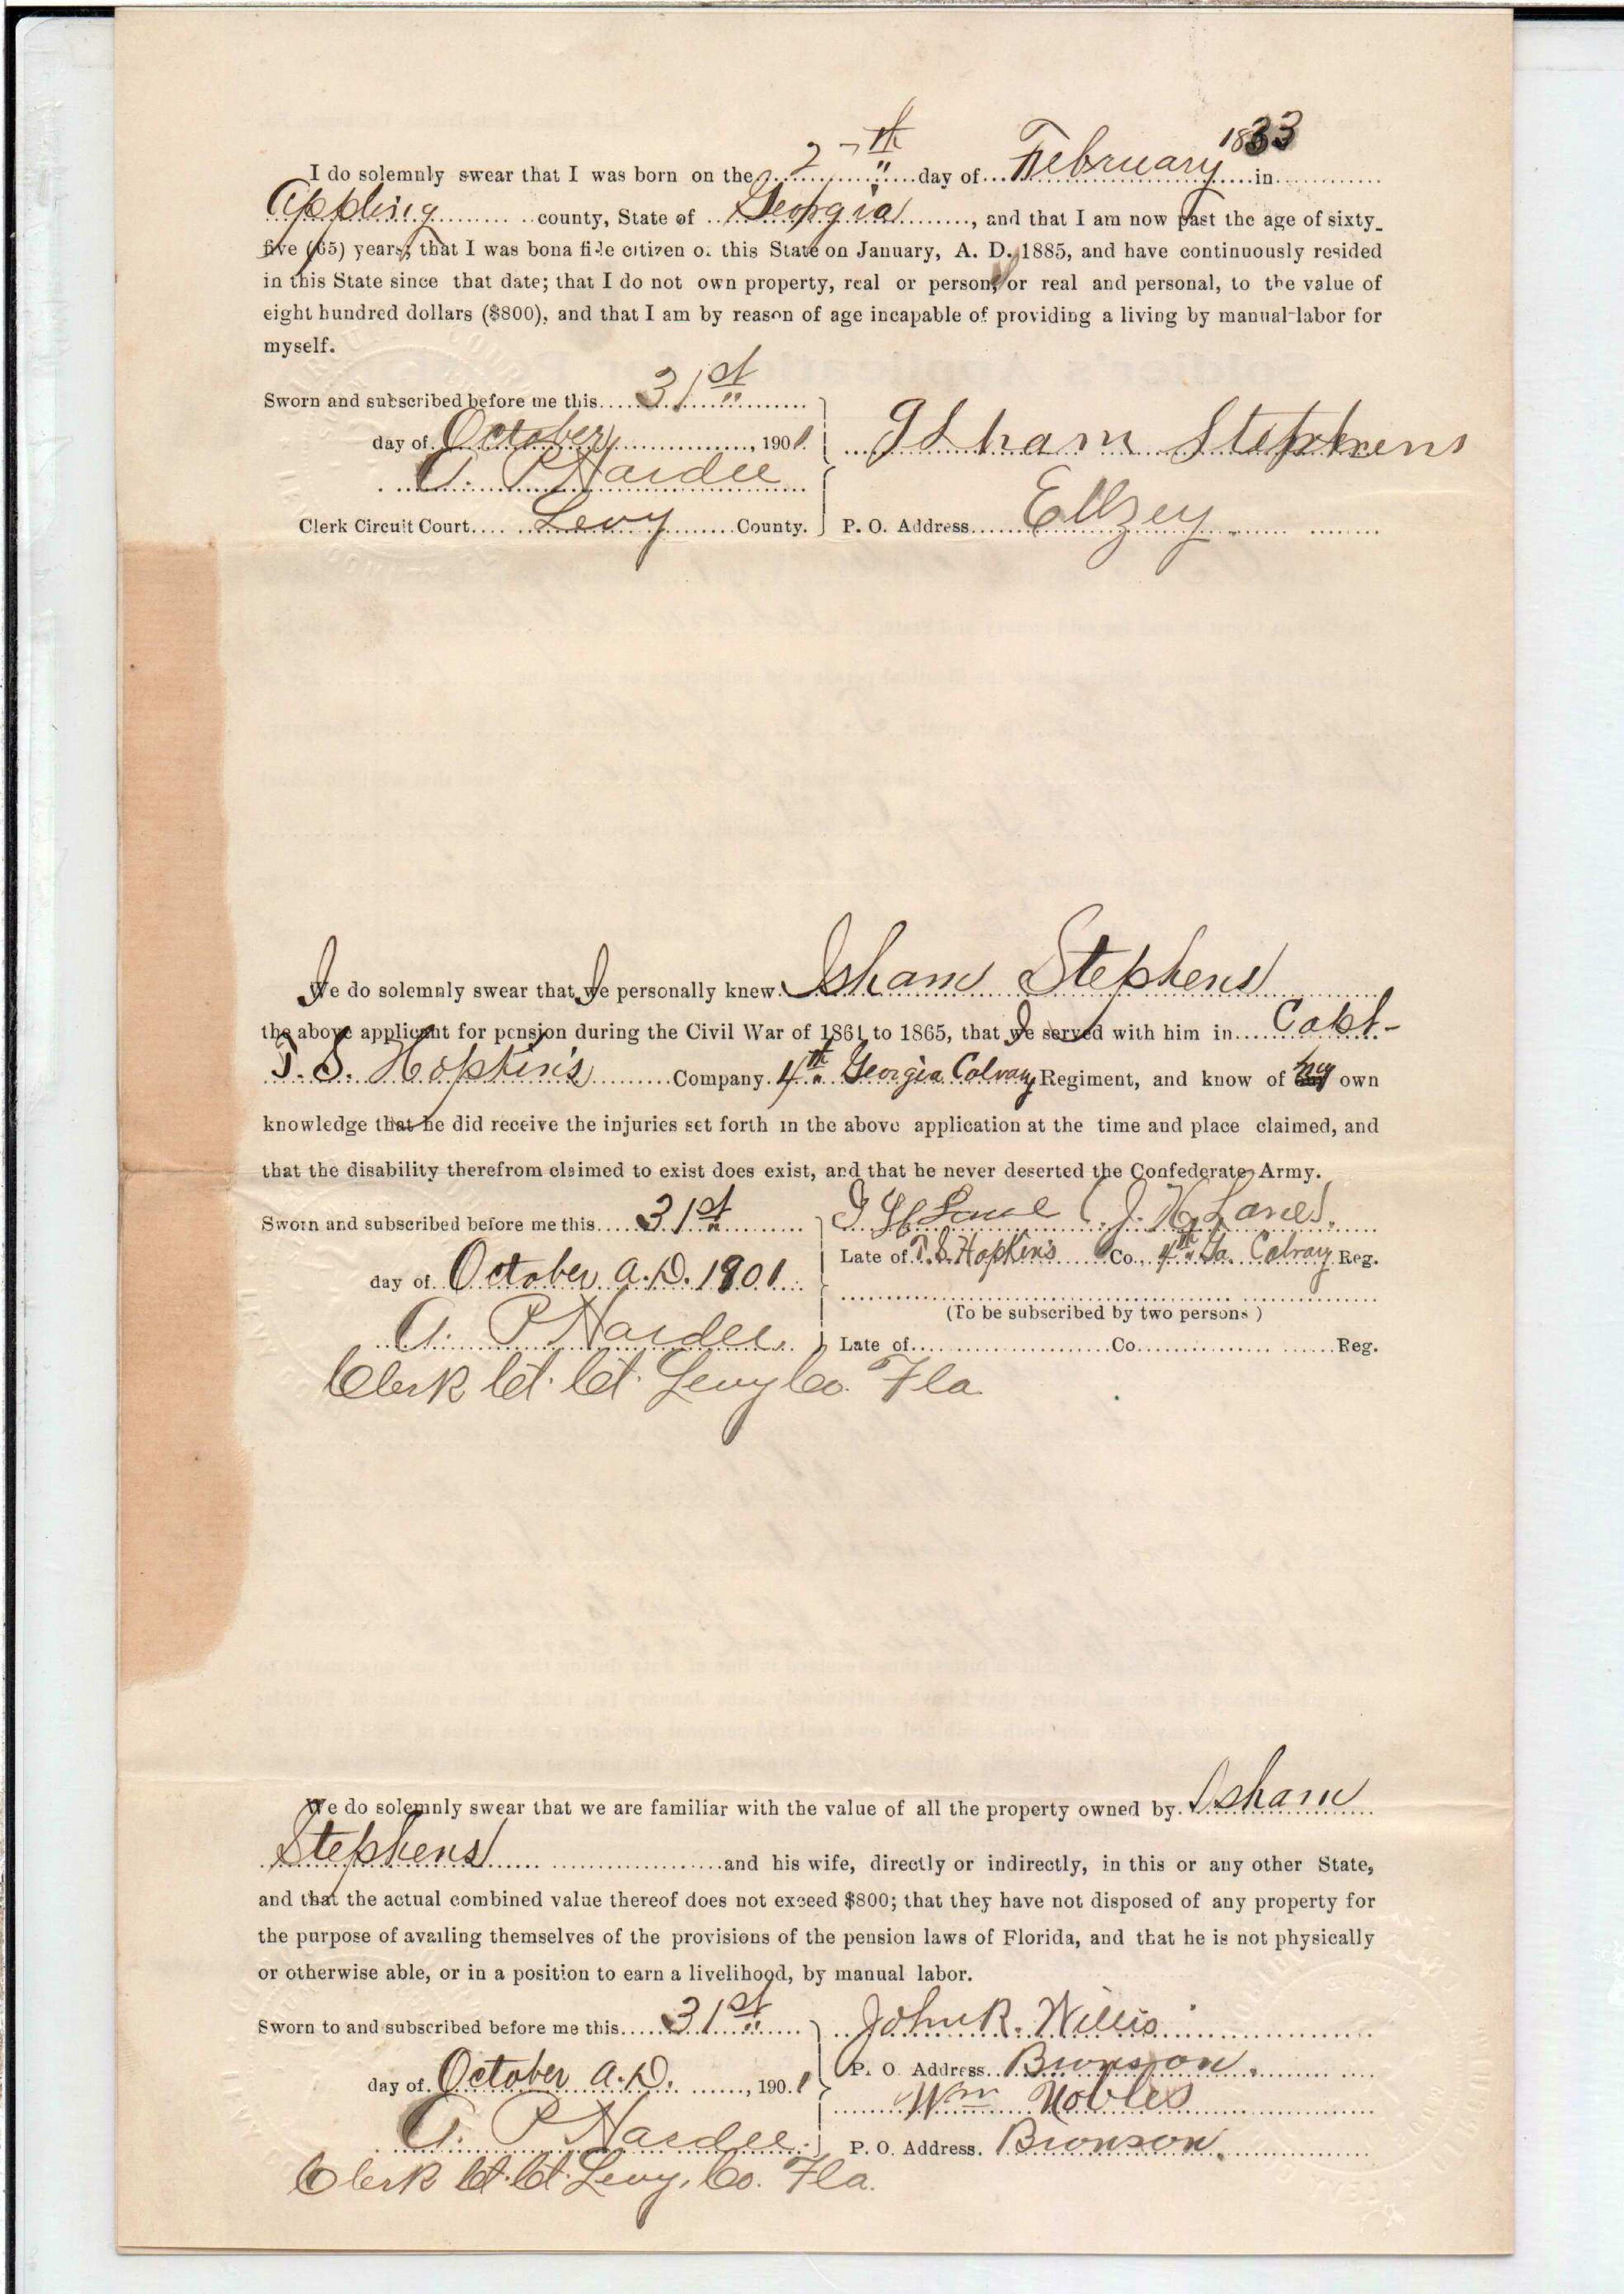 I do solemnly swear that I was born on the 27th day of February 1833 in
Appling county, State of Georgia, and that I am now past the age of sixty-
five (65) years; that I was bona fide citizen of this State on January, A. D. 1885, and have continuously resided
in this State since that date; that I do not own property, real or person, or real and personal, to the value of
eight hundred dollars ($800), and that I am by reason of age incapable of providing a living by manual-labor for
myself.
Sworn and subscribed before me this 31st
day of October, 1901.
Isham Stephens
A. P. Hardee
Clerk Circuit Court Levy County.
P. O. Address Ellzey
I do solemnly swear that I personally knew Isham Stephens
the above applicant for pension during the Civil War of 1861 to 1865, that I served with him in Capt-
T. S. Hopkin's Company 4th Georgia Calvary Regiment, and know of my own
knowledge that he did receive the injuries set forth in the above application at the time and place claimed, and
that the disability therefrom claimed to exist does exist, and that he never deserted the Confederate Army.
Sworn and subscribed before me this 31st
day of October A.D. 1901
J H Lane (J. H. Lane).
Late of T. S. Hopkin's Co., 4th Ga. Calvary Reg.
(To be subscribed by two persons)
A. P. Hardee.
Late of Co. Reg.
Clerk Ct. Ct. Levy Co. Fla.
We do solemnly swear that we are familiar with the value of all the property owned by Isham
Stephens and his wife, directly or indirectly, in this or any other State,
and that the actual combined value thereof does not exceed $800; that they have not disposed of any property for
the purpose of availing themselves of the provisions of the pension laws of Florida, and that he is not physically
or otherwise able, or in a position to earn a livelihood, by manual labor.
Sworn to and subscribed before me this 31st
day of October A.D., 1901
John R. Willis
P. O. Address Bronson.
Wm Nobles
A. P. Hardee.
P. O. Address. Bronson.
Clerk Ct. Ct. Levy, Co. Fla.